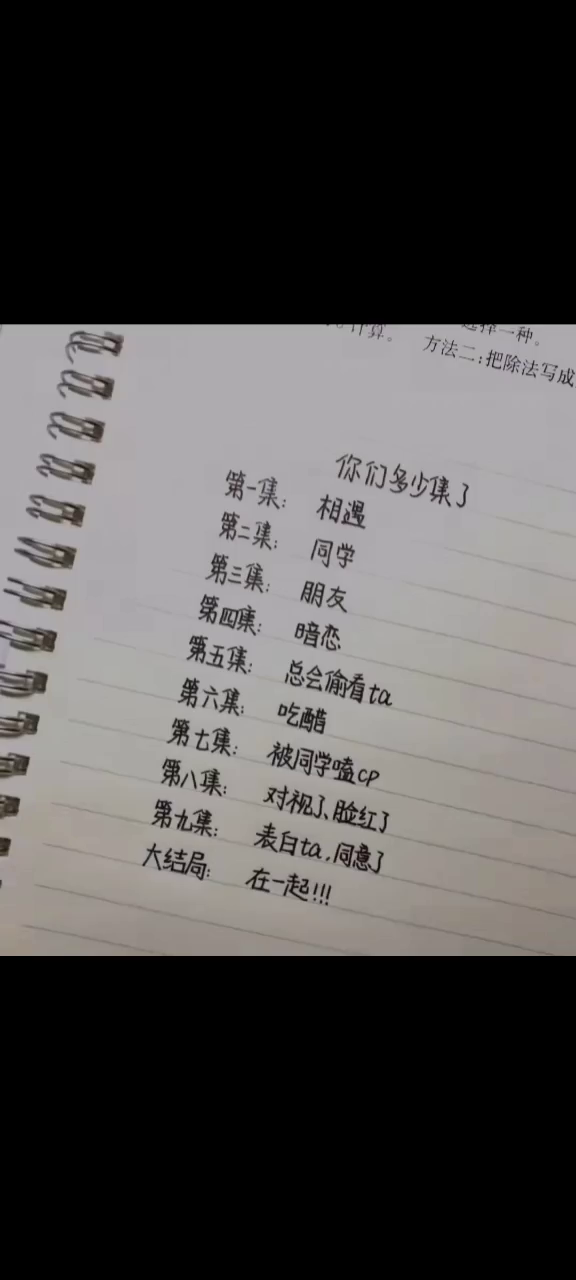 选择一种。
计算。 方法二:把除法写成
你们多少集了
第一集: 相遇
第二集: 同学
第三集: 朋友
第四集: 暗恋
第五集: 总会偷看ta
第六集: 吃醋
第七集: 被同学嗑cp
第八集: 对视了、脸红了
第九集: 表白ta,同意了
大结局: 在一起!!!